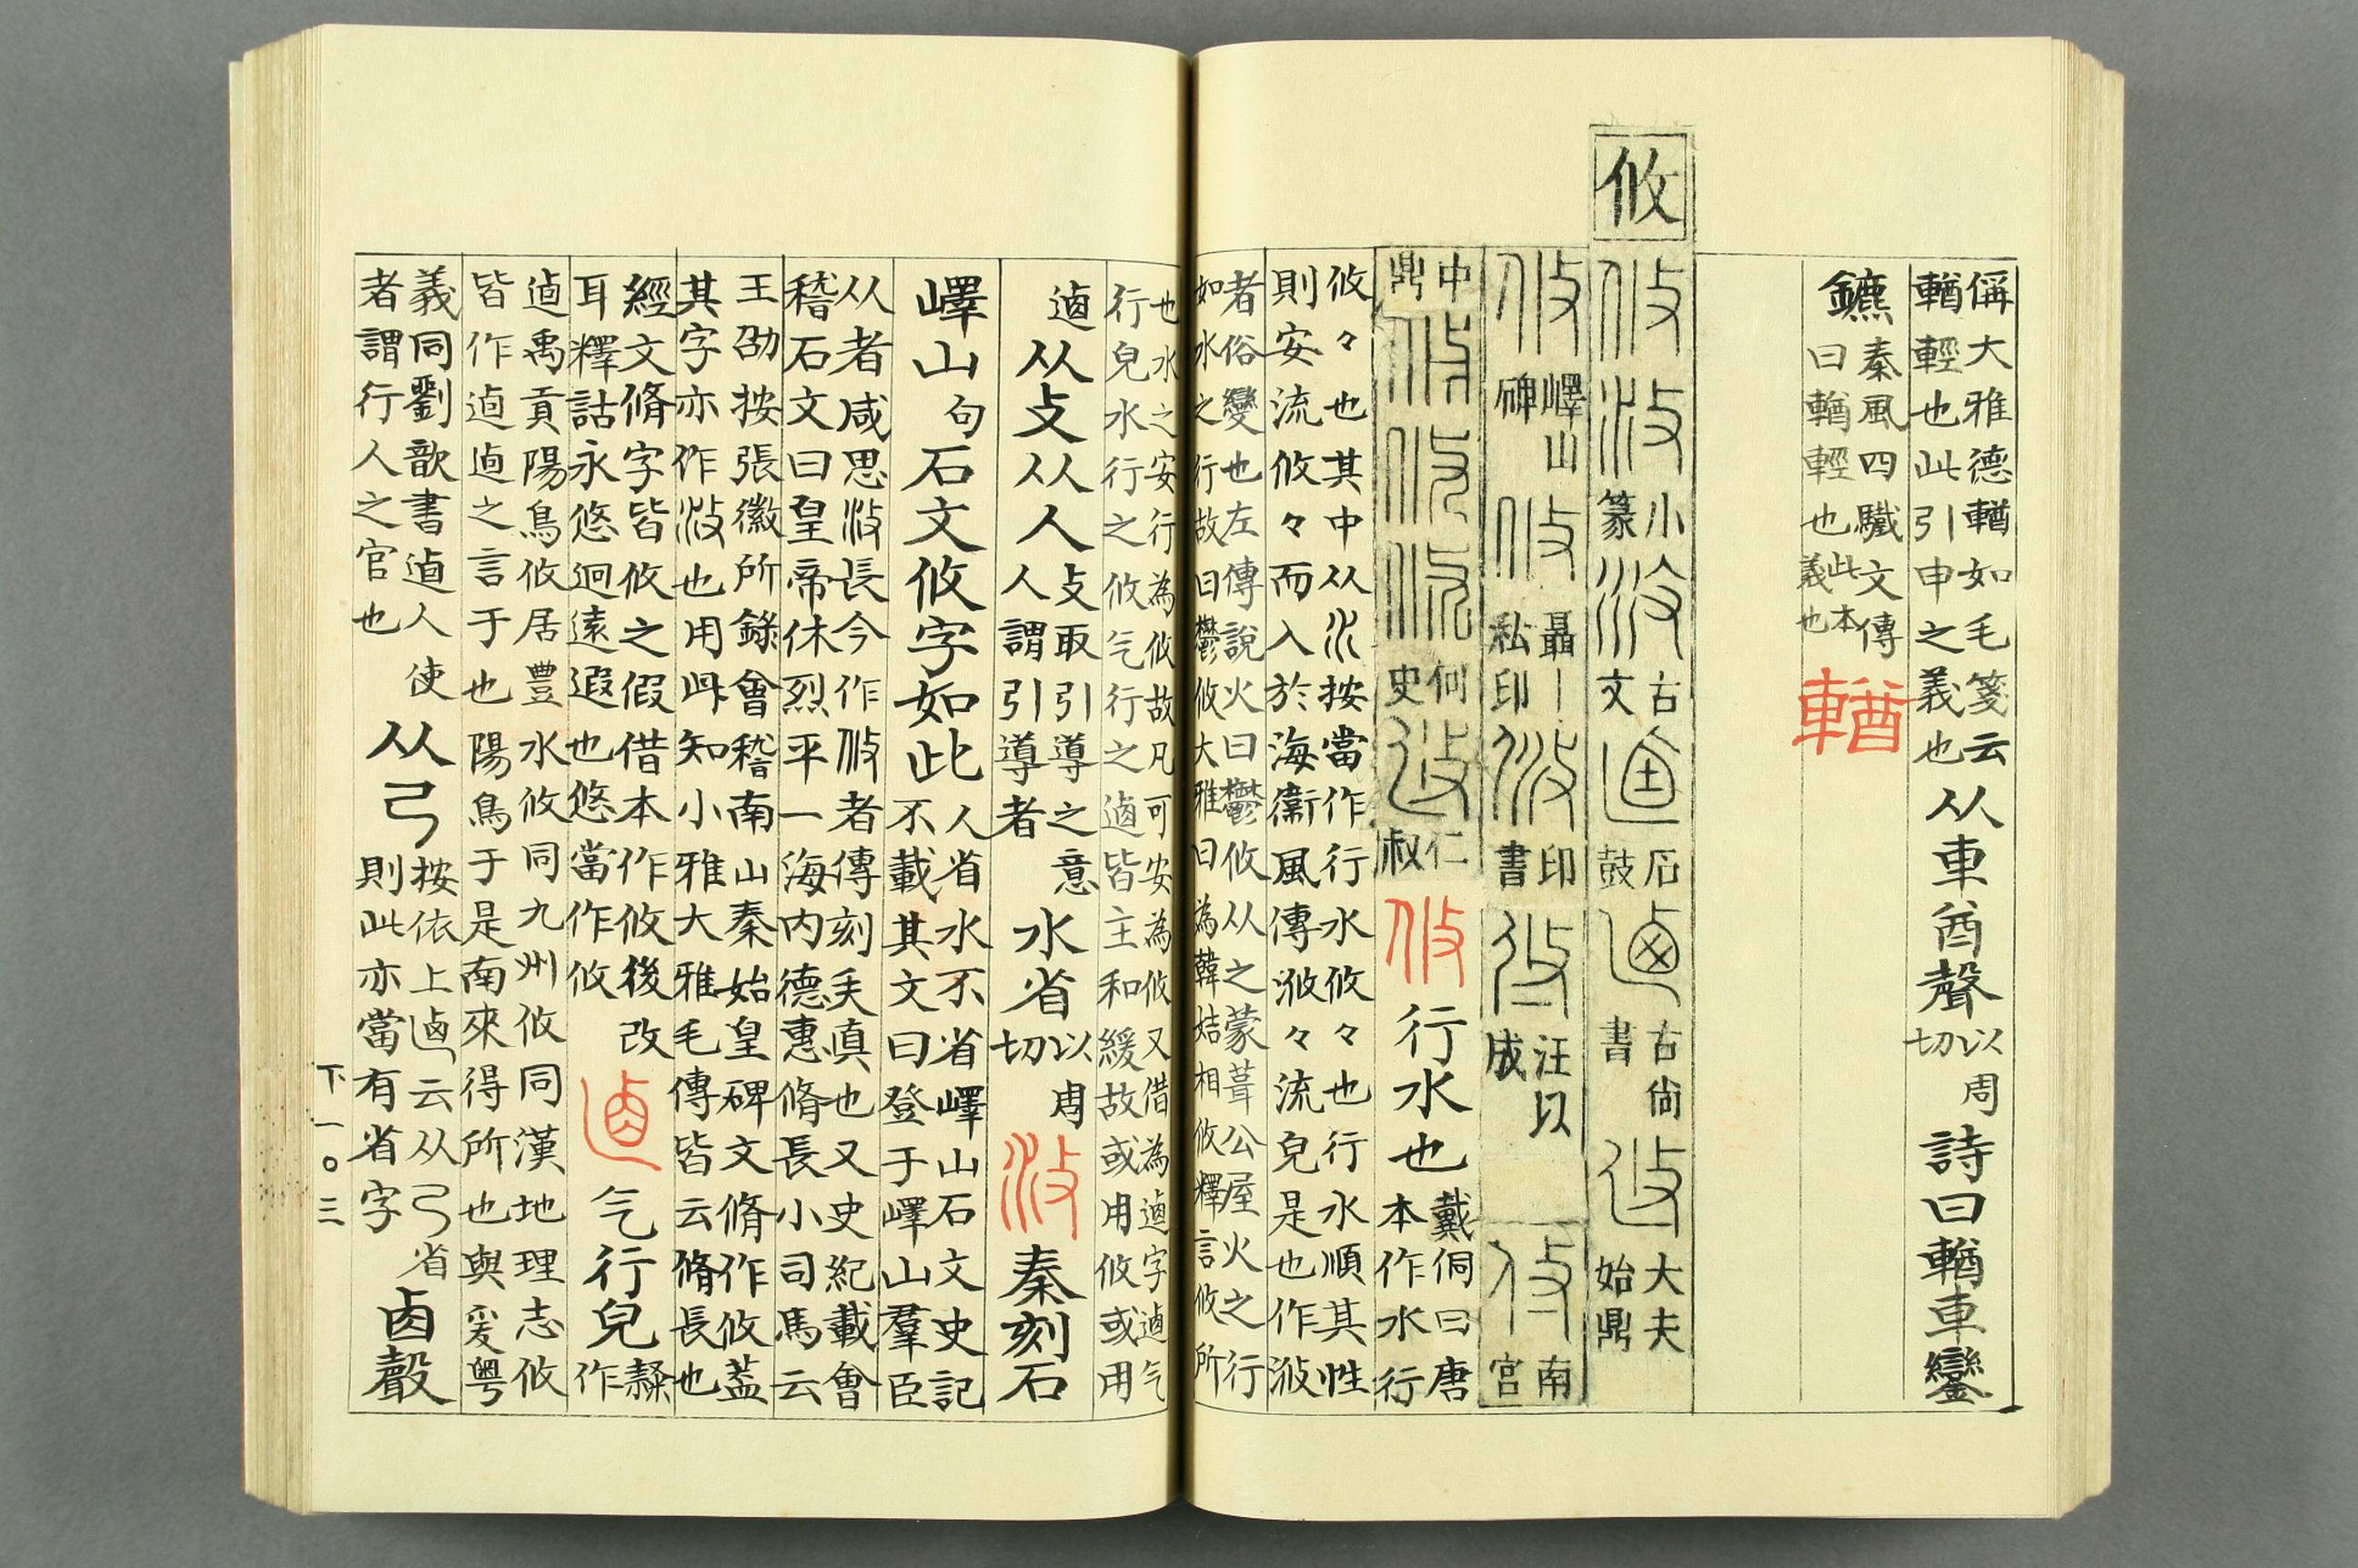 偁大雅德輶如毛箋云
輶輕也此引申之義也
从車酋聲
以周
切
詩曰輶車鑾
鑣
秦風四驖文傳
曰輶輕也
此本
義也
輶
攸
小
篆
古
文
石
鼓
古尙
書
大夫
始鼎
嶧山
碑
聶｜
私印
印
書
汪㠯
成
南
宮
中
鼎
何
史
仁
叔
行水也
戴侗曰唐
本作水行
攸々也其中从水按當作行水攸々也行水順其性
則安流攸々而入於海衞風傳浟々流皃是也作浟
者俗變也左傳說火曰鬱攸从之蒙葺公屋火之行
如水之行故曰鬱攸大雅曰為韓姞相攸釋言攸所
也水之安行為攸故凡可安為攸又借為逌字逌气
行皃水行之攸气行之逌皆主和緩故或用攸或用
逌
从攴从人
攴取引導之意
人謂引導者
水省
以周
切
秦刻石
嶧山
句
石文攸字如此
人省水不省嶧山石文史記
不載其文曰登于嶧山羣臣
从者咸思汥長今作攸者傳刻失真也又史紀載會
稽石文曰皇帝休烈平一海內德惠脩長小司馬云
王劭按張徽所錄會稽南山秦始皇碑文脩作攸蓋
其字亦作汥也用此知小雅大雅毛傳皆云脩長也
經文脩字皆攸之假借本作攸後改
耳釋詁永悠迥遠遐也悠當作攸
气行皃
隸
作
逌禹貢陽鳥攸居豐水攸同九州攸同漢地理志攸
皆作逌逌之言于也陽鳥于是南來得所也與爰粵
義同劉歆書逌人使
者謂行人之官也
从㔾
按依上逌云从㔾省
則此亦當有省字
卤聲
下一〇三